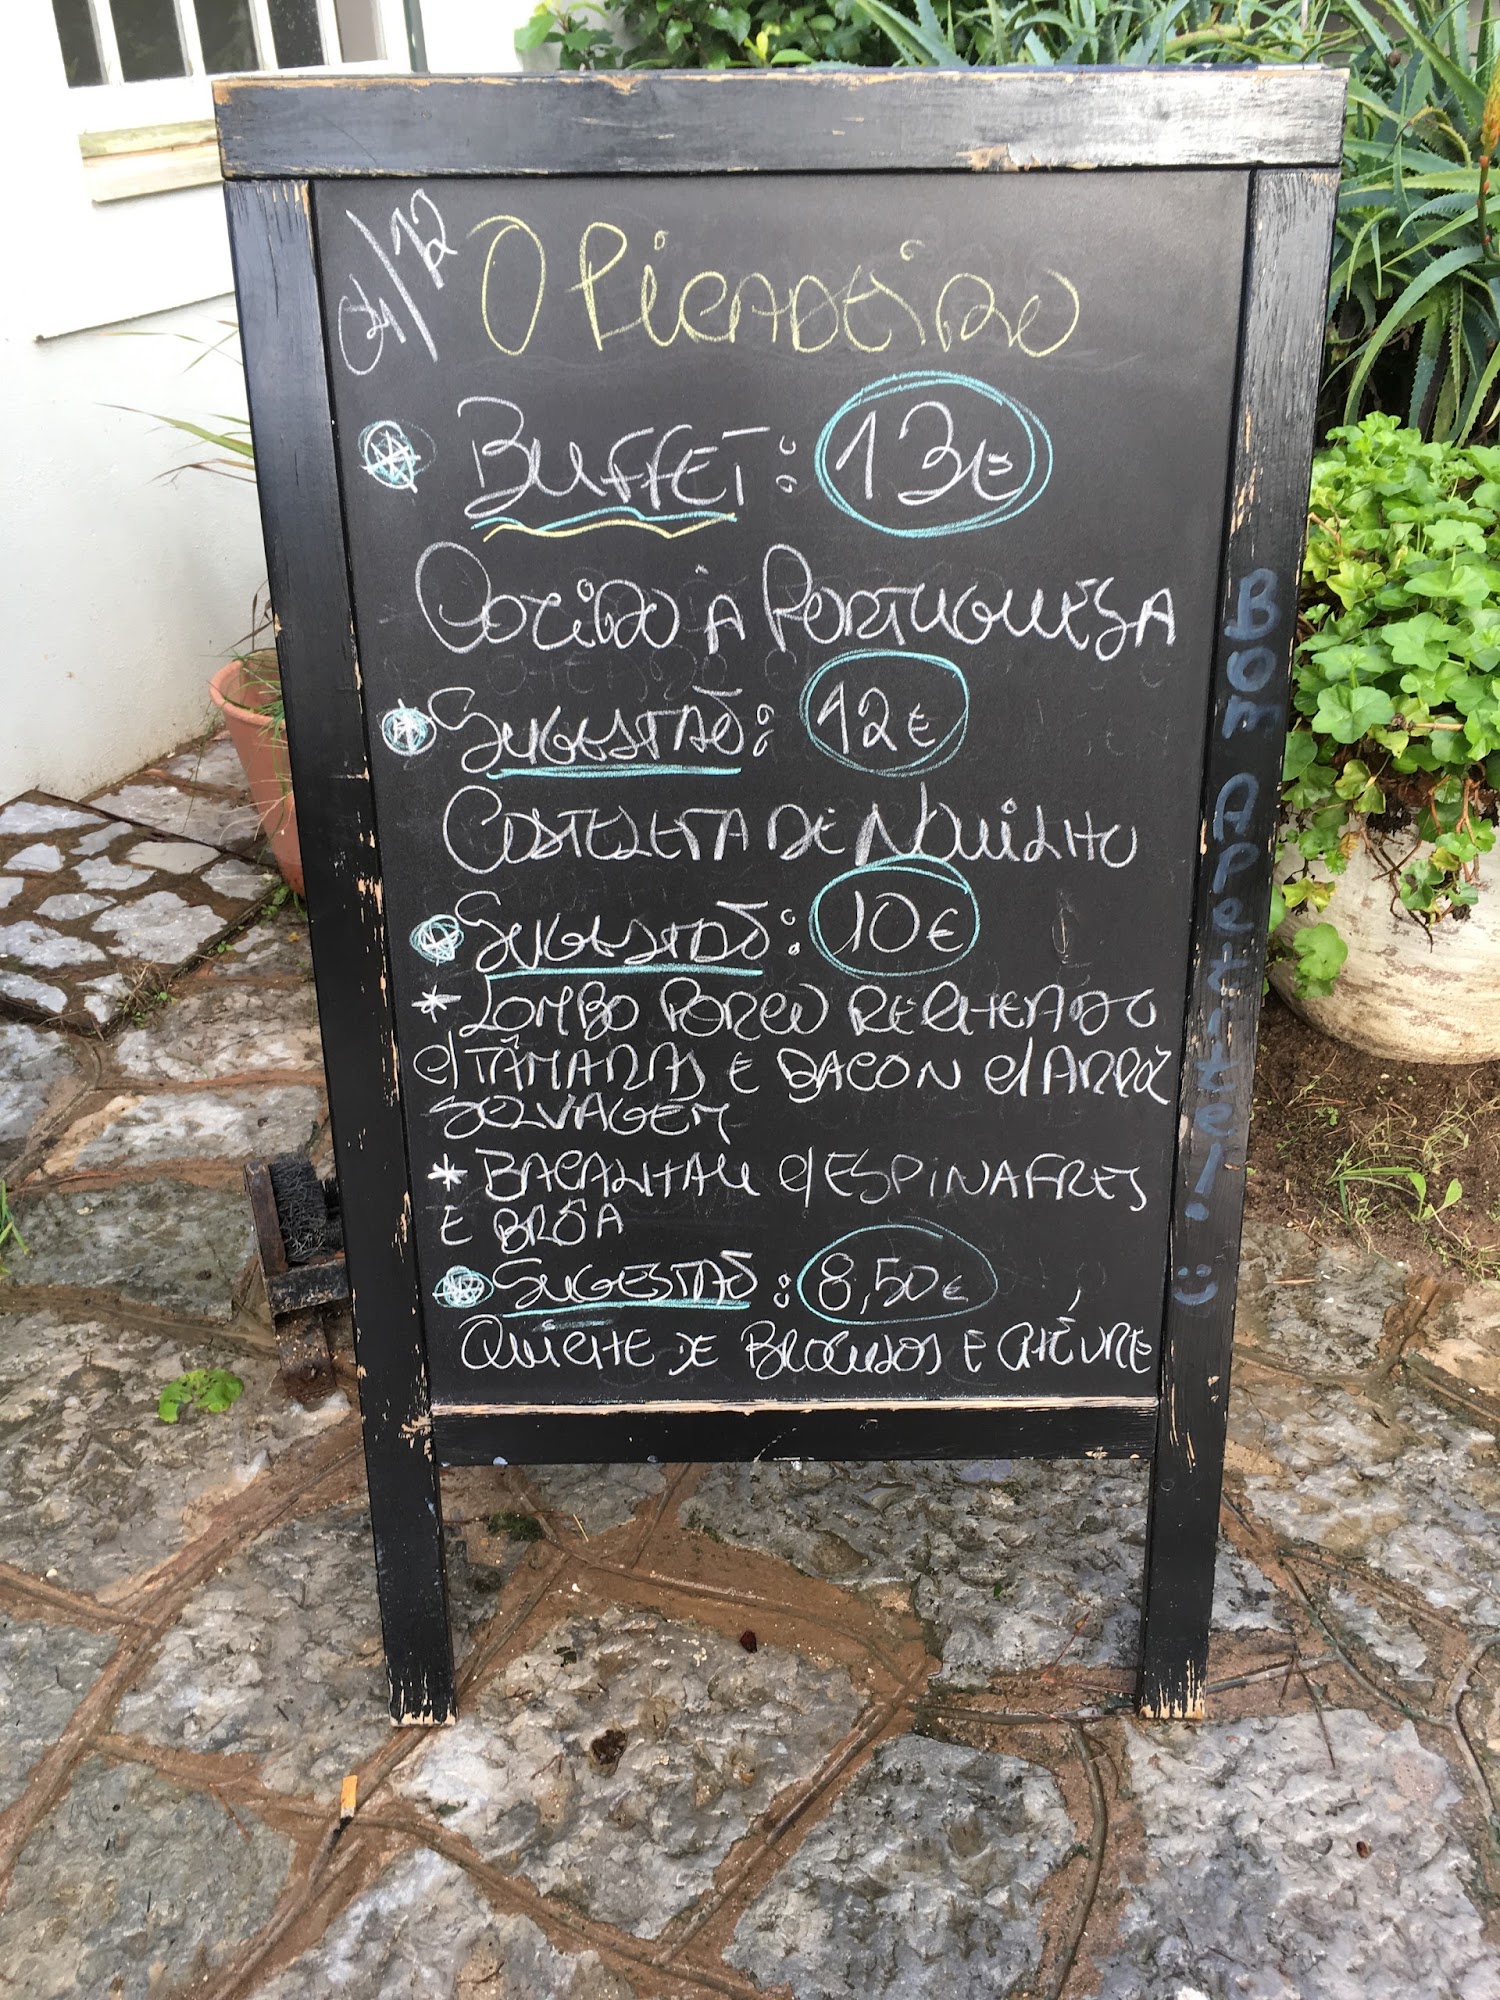 04/12
O PICADEIRO
BUFFET: 13€
COZIDO À PORTUGUESA
SUGESTÃO: 12€
COSTELETA DE NOVILHO
SUGESTÃO: 10€
* LOMBO PORCO RECHEADO
C/ TÂMARAS E BACON C/ ARROZ
SELVAGEM
* BACALHAU C/ ESPINAFRES
E BRÔA
SUGESTÃO: 8,50€
QUICHE DE BROCULOS E CHÉVRE
BOM APETITE!. :)